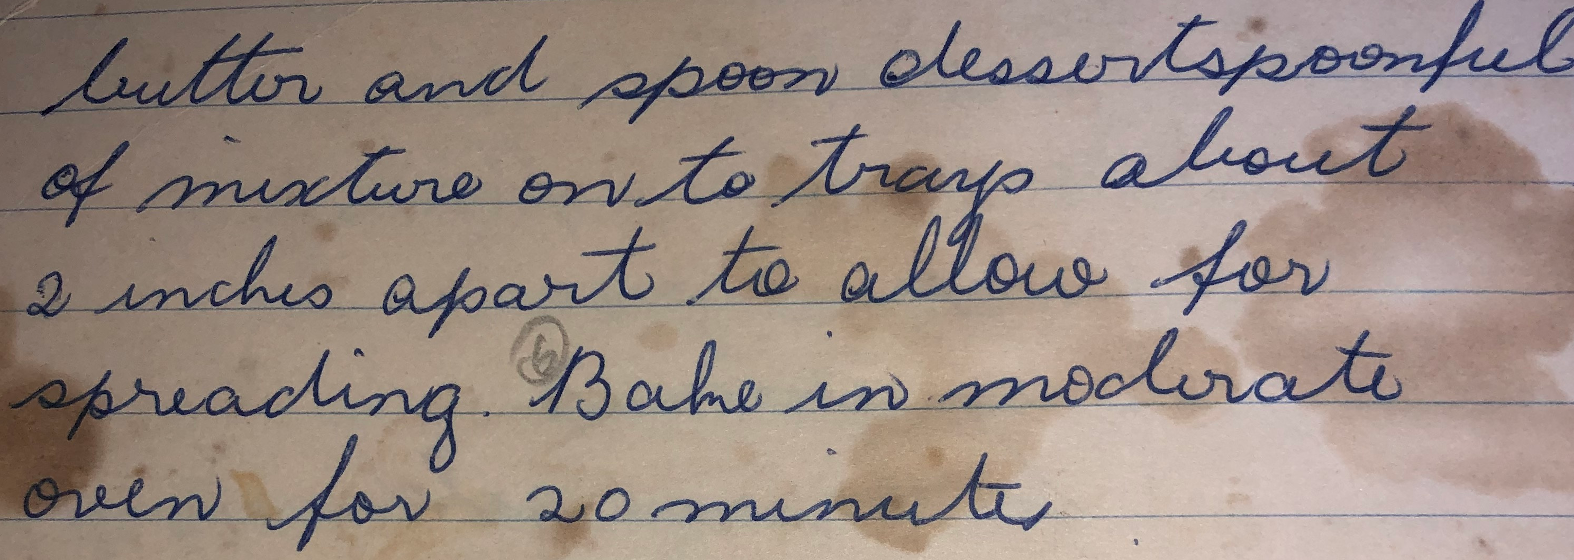 butter and spoon dessertspoonful
of mixture on to trays about
2 inches apart to allow for
spreading. ⑥ Bake in moderate
oven for 20 minutes